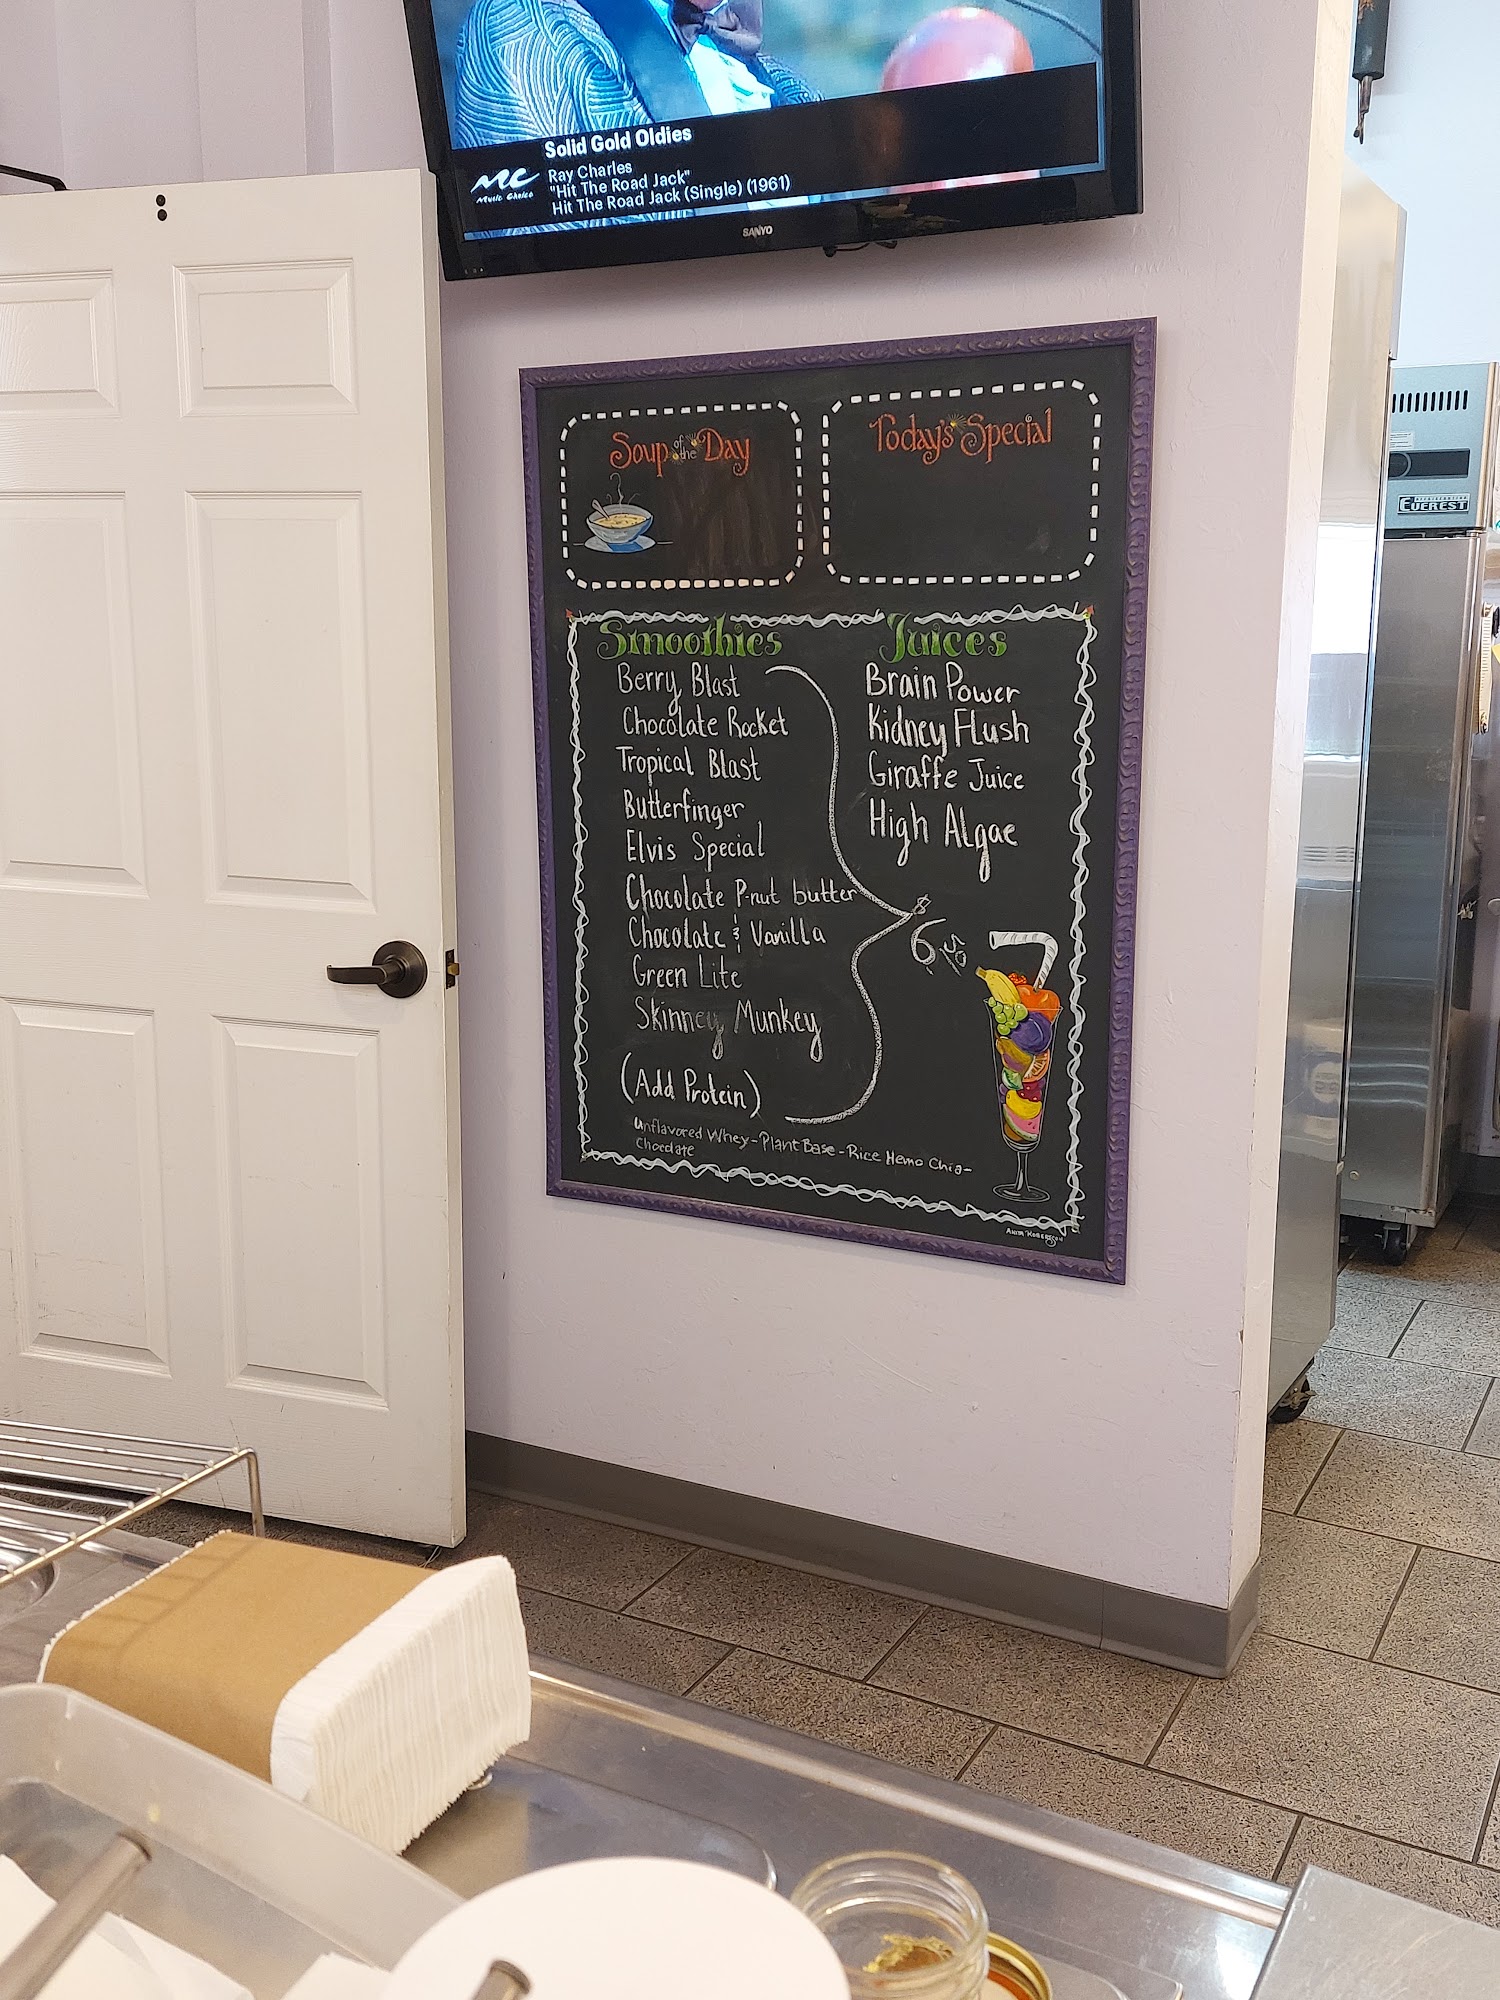 Solid Gold Oldies
MC
Music Choice
Ray Charles
"Hit The Road Jack"
Hit The Road Jack (Single) (1961)
SANYO
Soup of the Day
Today's Special
Smoothies
Berry Blast
Chocolate Rocket
Tropical Blast
Butterfinger
Elvis Special
Chocolate P-nut butter
Chocolate & Vanilla
Green Lite
Skinney Munkey
(Add Protein)
Unflavored Whey-Plant Base-Rice Hemo Chia-
Chocolate
$
6.50
Juices
Brain Power
Kidney Flush
Giraffe Juice
High Algae
REFRIGERATION
EVEREST